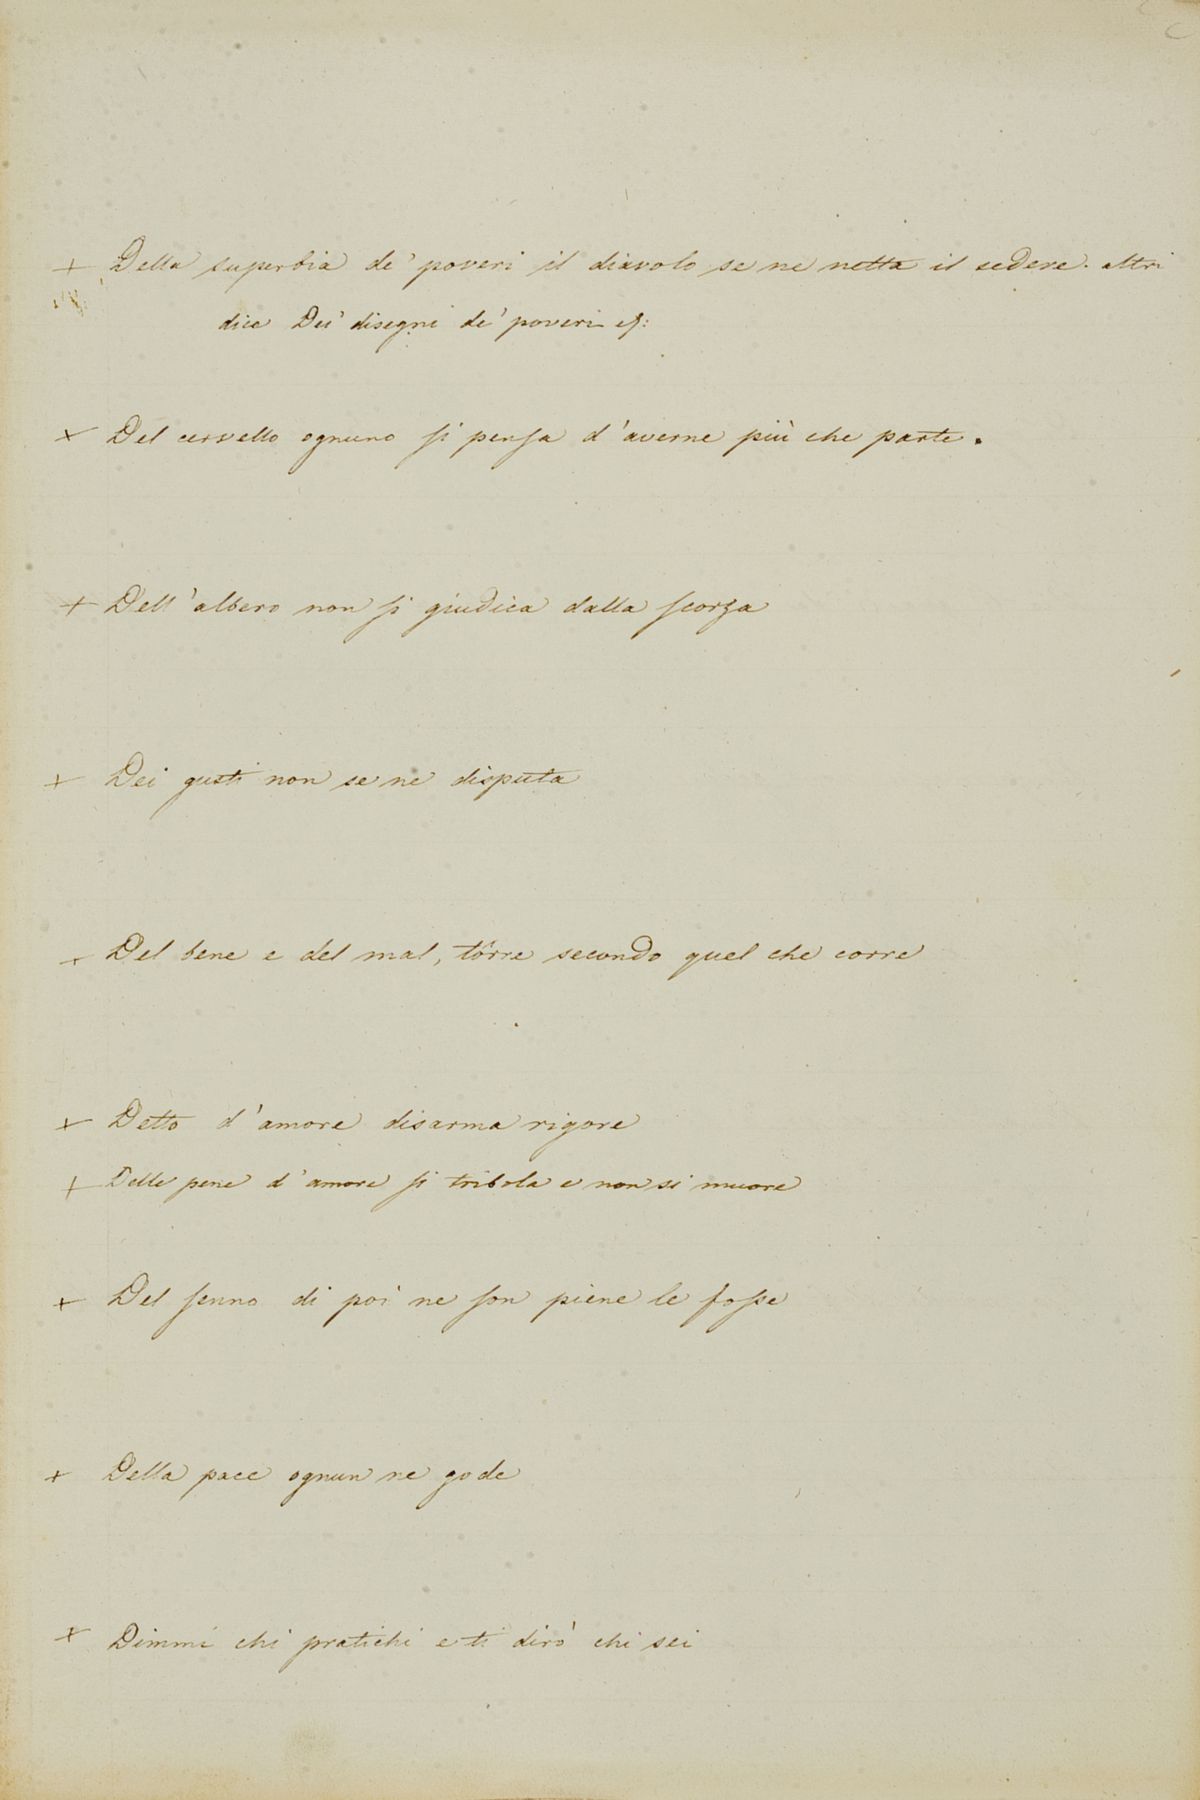 + Della superbia de' poveri il diavolo se ne netta il sedere. altri
dice Dei disegni de' poveri
+ Del cervello ognuno si pensa d'averne più che parte.
+ Dell'albero non si giudica dalla scorza
+ Dei gusti non se ne disputa
+ Del bene e del mal, tôrre secondo quel che corre
+ Detto d'amore disarma rigore
+ Delle pene d'amore si tribola e non si muore
+ Del senno di poi ne son piene le fosse
+ Della pace ognun ne gode
+ Dimmi chi pratichi e ti dirò chi sei